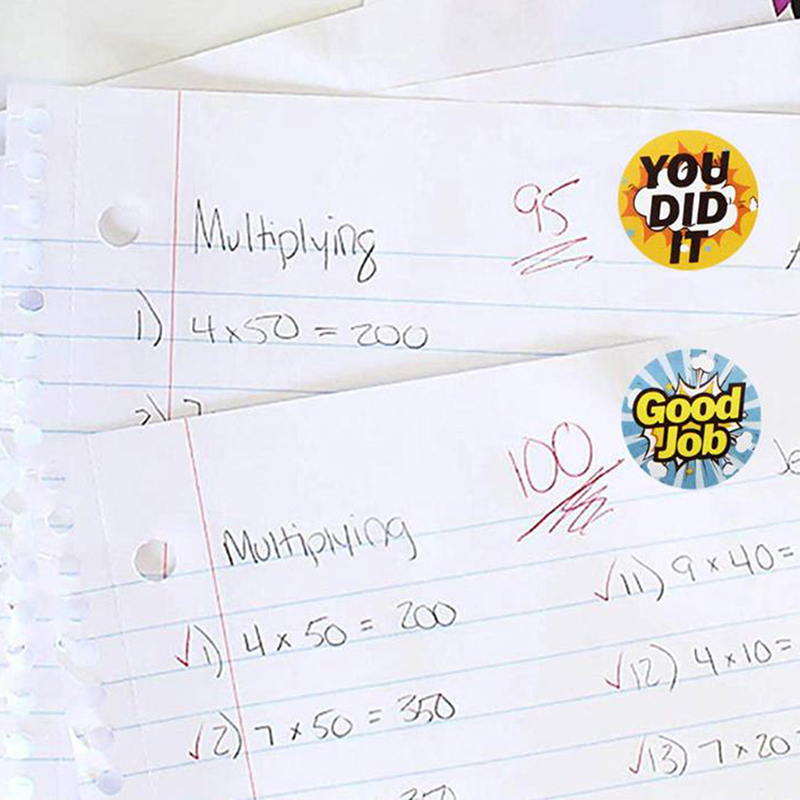 Multiplying
95
YOU
DID
IT
1) 4x50 = 200
Multiplying
100
Good
Job
√1) 4 x 50 = 200
√2) 7 x 50 = 350
√11) 9 x 40 =
√12) 4 x 10 =
√13) 7 x 20